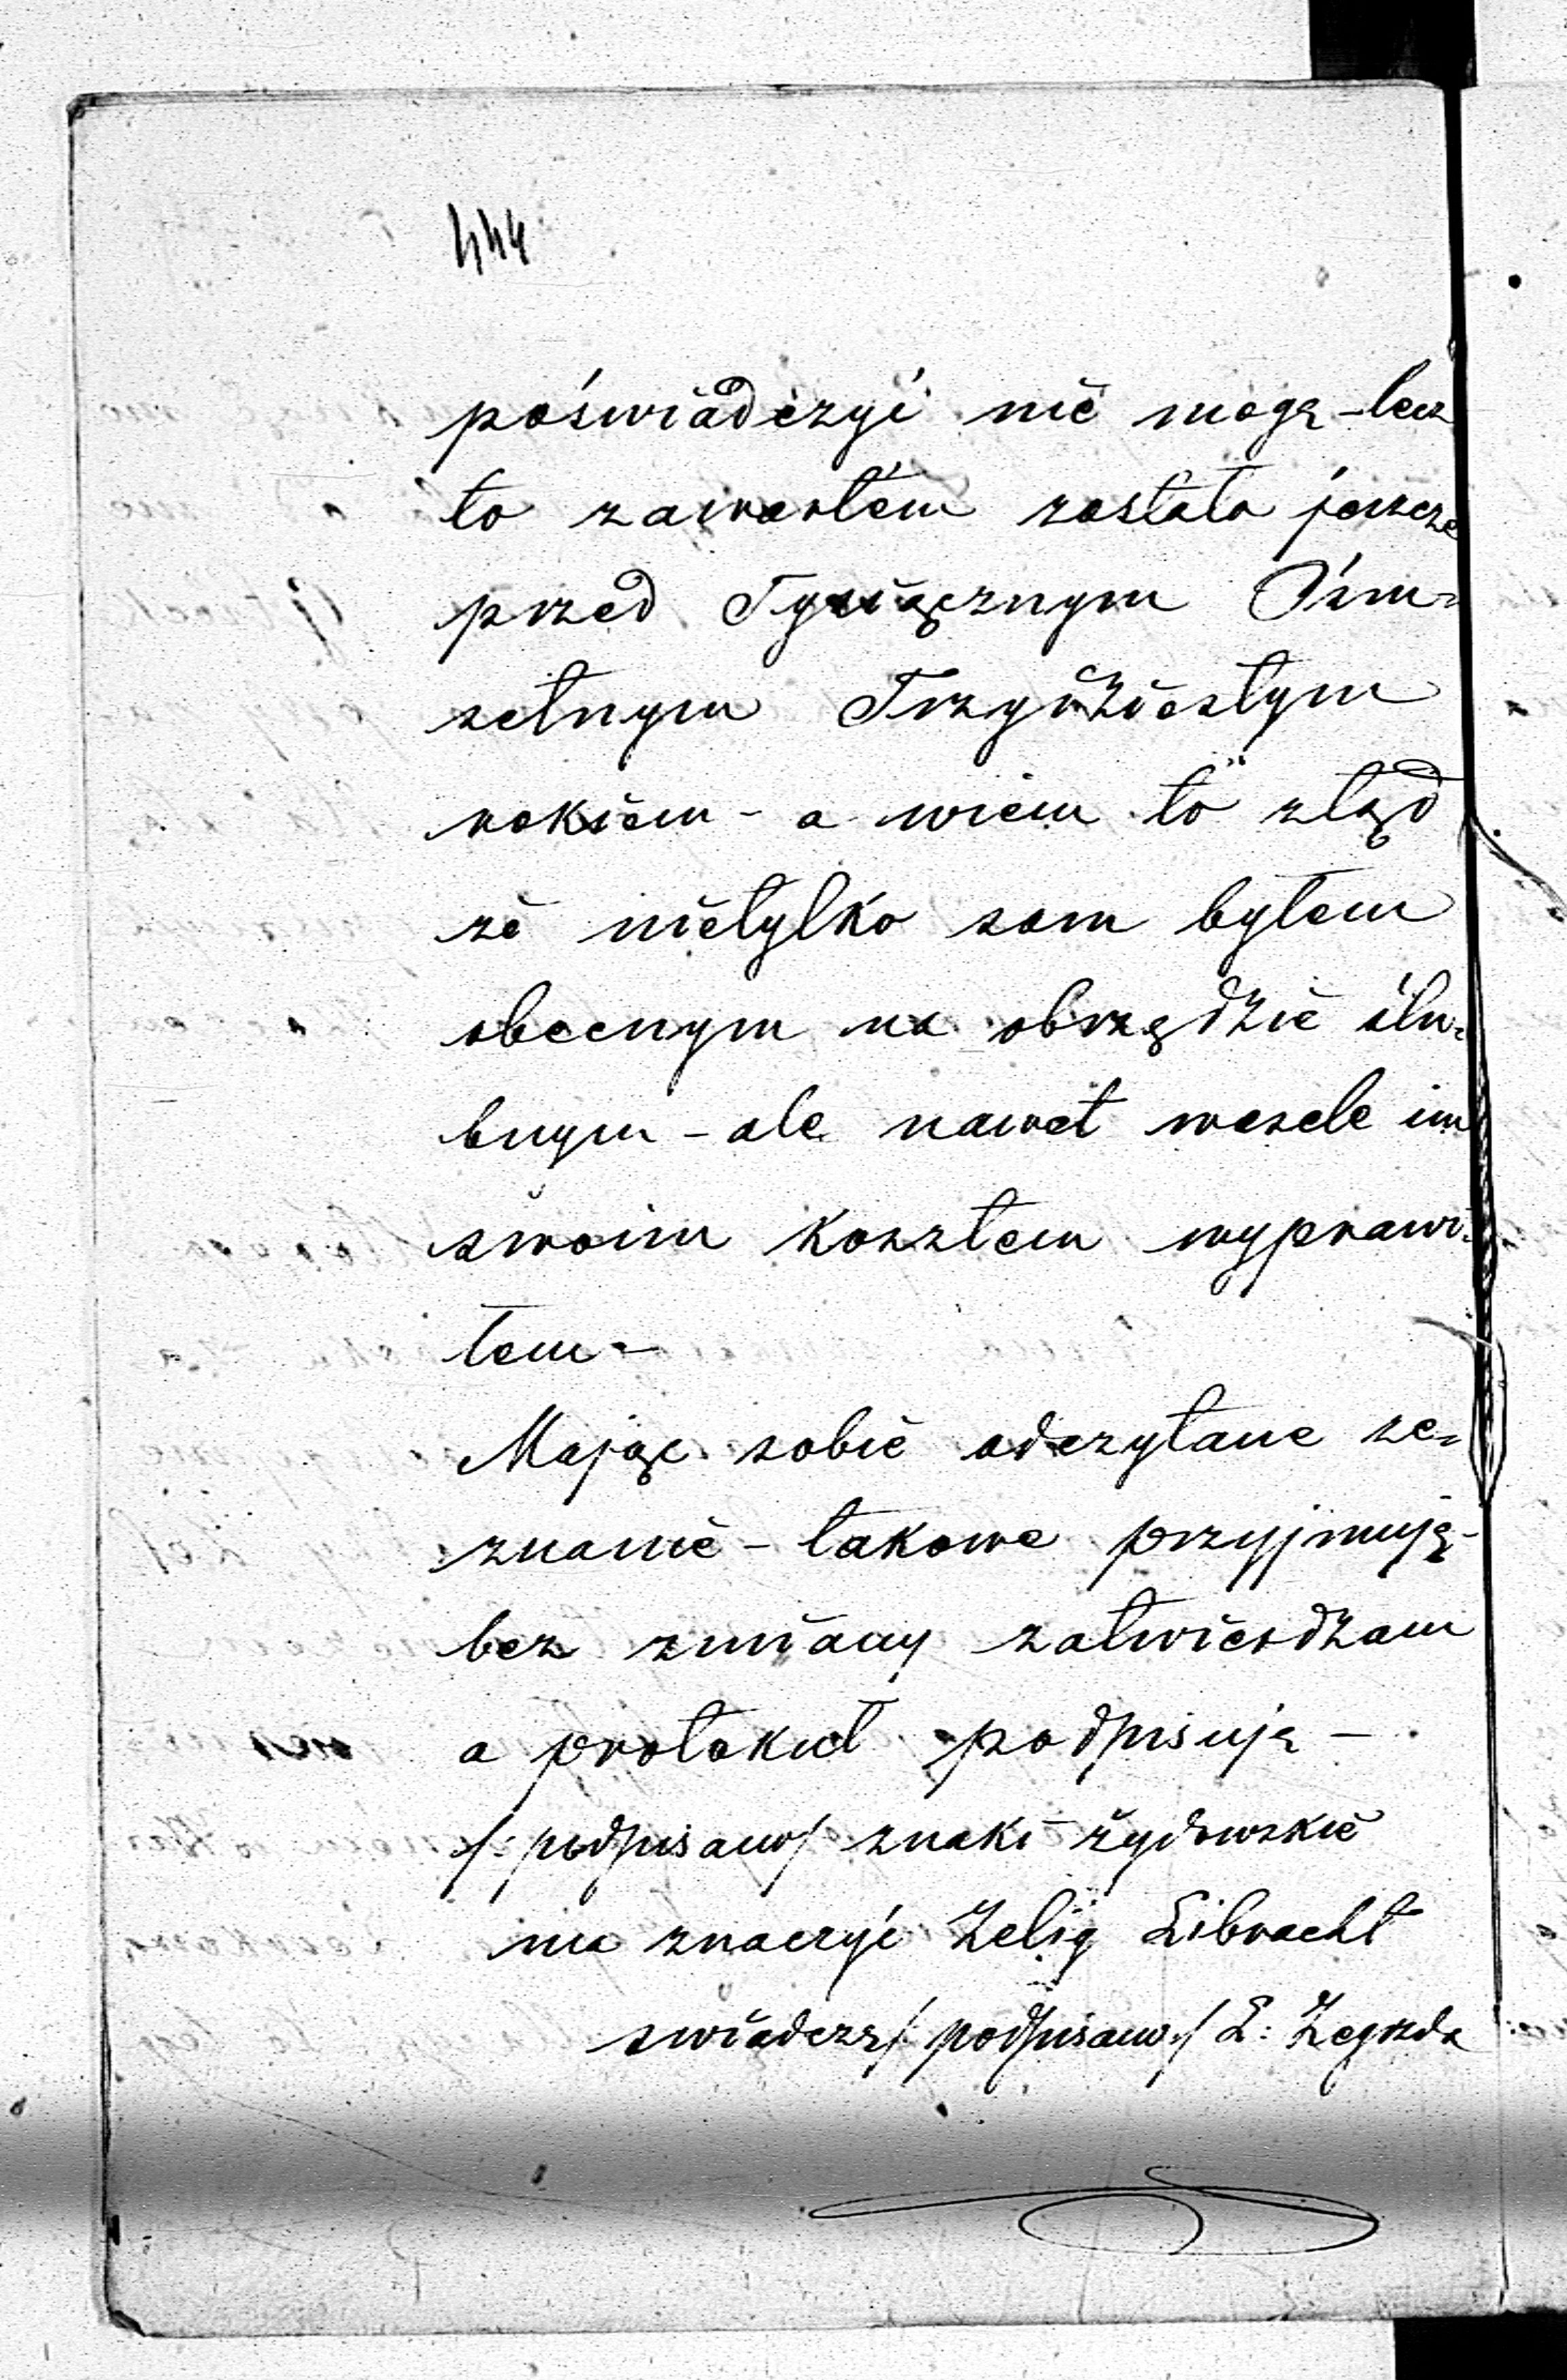 444
poświadczyć nie mogę - lecz
to zawartém zostało jeszcze
przed Tysiącznym Óśm=
setnym Trzydziestym
rokiem - a wiem to ztąd
że nietylko sam byłem
obecnym na obrzędzie ślu=
bnym - ale nawet wesele im
swoim kosztem wyprawi=
łem -
Mając sobie odczytane ze=
znanie - takowe przyjmuję -
bez zmiany zatwierdzam
a protokuł podpisuję -
/: podpisano/ znaki żydowskie
ma znaczyć Zelig Libracht
świadczy/ podpisano/ L: Zegrzda